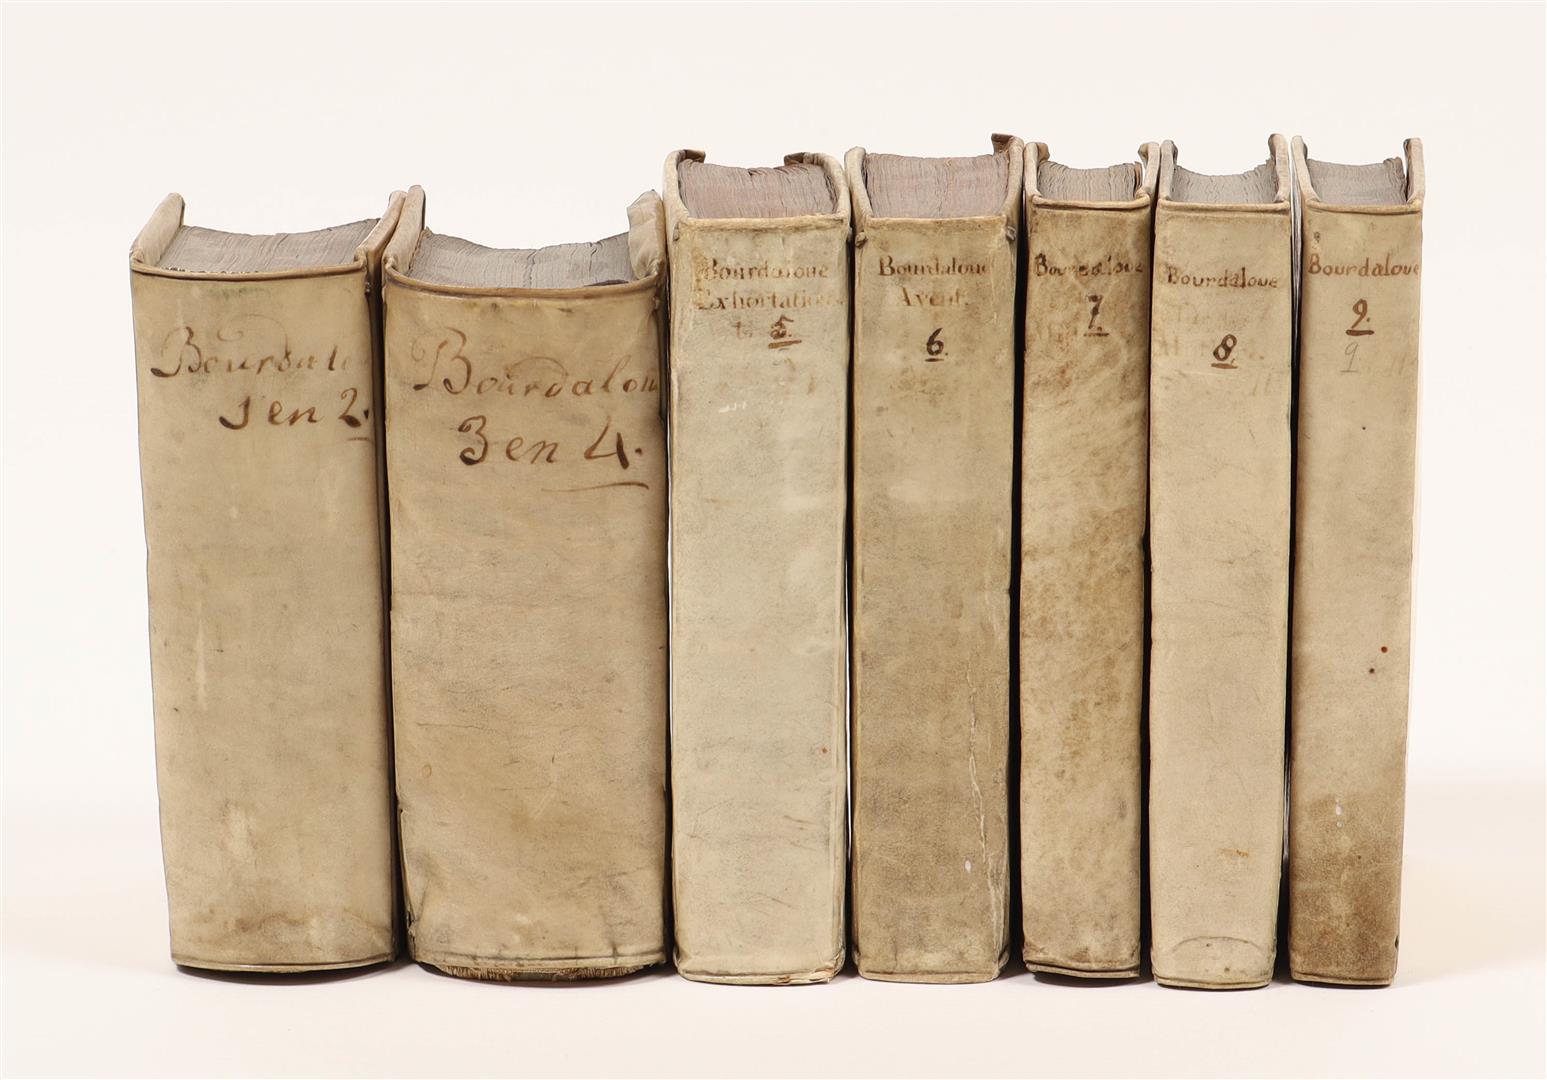 Bourdalo
1 en 2.
Bourdalou
3 en 4.
Bourdaloue
Exhortations
5.
Bourdaloue
Avent.
6.
Bourdaloue
7.
Bourdaloue
8.
Bourdaloue
9.
9